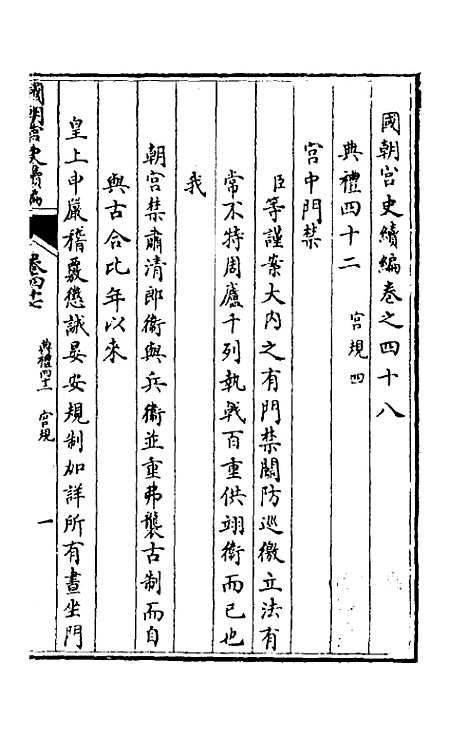 國朝宮史續編卷之四十八
典禮四十二 宮規四
宮中門禁
臣等謹案大內之有門禁關防巡徼立法有
常不特周廬千列執戟百重供翊衛而已也
我
朝宮禁肅清郎衛與兵衛並重弗襲古制而自
與古合比年以來
皇上申嚴稽覈懲誡晏安規制加詳所有晝坐門
國朝宮史續編 卷四十 典禮四十二 宮規 一